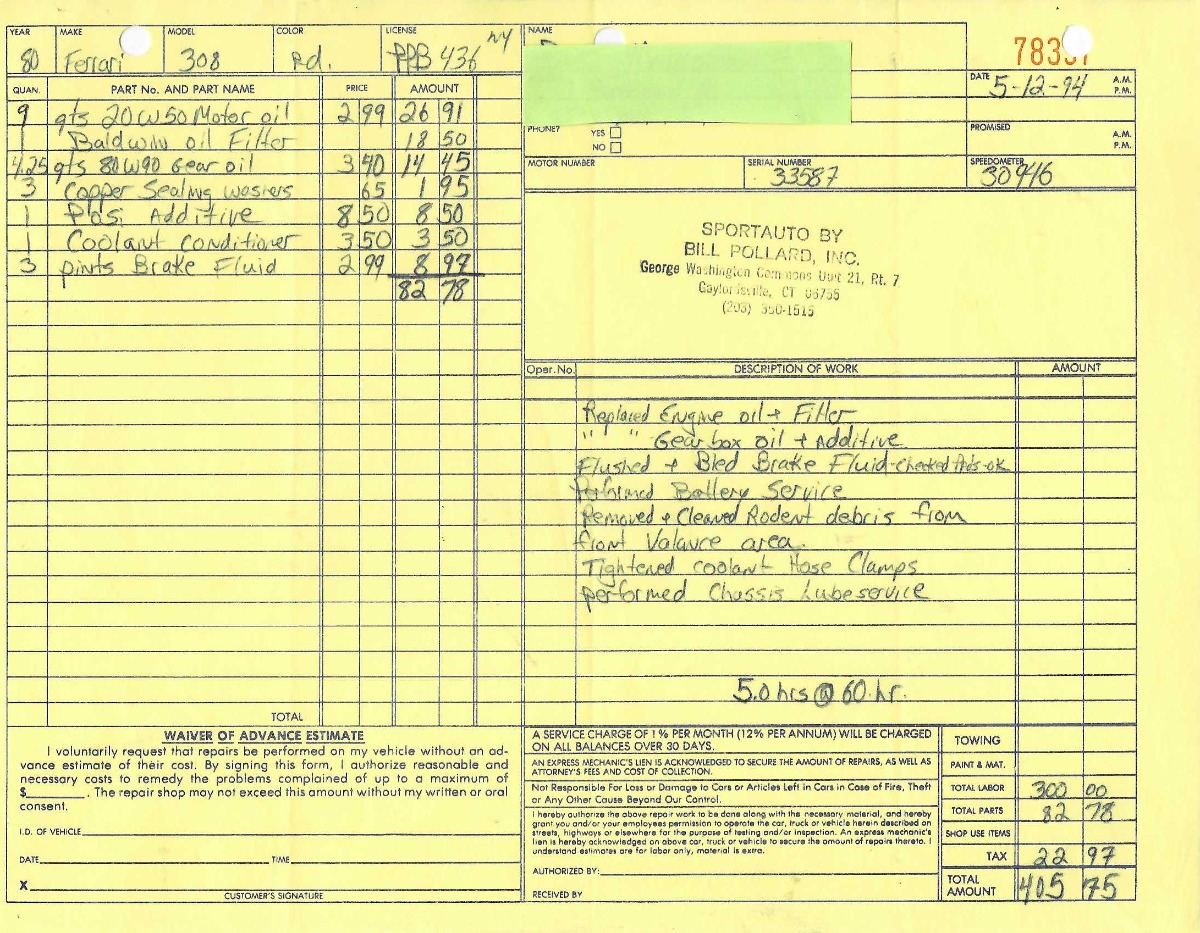 YEAR MAKE MODEL COLOR LICENSE NAME
80 Ferrari 308 Rd. PPB 436 NY
DATE 5-12-94 A.M.
P.M.
QUAN. PART No. AND PART NAME PRICE AMOUNT
9 qts 20W50 Motor oil 2 99 26 91
1 Baldwin oil Filter 18 50
4.25 qts 80W90 Gear oil 3 40 14 45
3 Copper Sealing washers 65 1 95
1 Posi Additive 8 50 8 50
1 Coolant conditioner 3 50 3 50
3 pints Brake Fluid 2 99 8 97
82 78
TOTAL
PHONE? YES
NO
PROMISED A.M.
P.M.
MOTOR NUMBER SERIAL NUMBER SPEEDOMETER
33587 30946
SPORTAUTO BY
BILL POLLARD, INC.
George Washington Commons Unit 21, Rt. 7
Gaylordsville, CT 06755
(203) 350-1515
Oper. No. DESCRIPTION OF WORK AMOUNT
Replaced Engine oil + Filter
" " Gearbox oil + Additive
Flushed + Bled Brake Fluid-checked Pads-ok
Performed Battery Service
Removed + Cleaned Rodent debris from
front Valance area.
Tightened coolant Hose Clamps
performed Chassis Lube service
5.0 hrs @ 60 hr.
WAIVER OF ADVANCE ESTIMATE
I voluntarily request that repairs be performed on my vehicle without an ad-
vance estimate of their cost. By signing this form, I authorize reasonable and
necessary costs to remedy the problems complained of up to a maximum of
$ . The repair shop may not exceed this amount without my written or oral
consent.
I.D. OF VEHICLE
DATE TIME
X
CUSTOMER'S SIGNATURE
A SERVICE CHARGE OF 1% PER MONTH (12% PER ANNUM) WILL BE CHARGED
ON ALL BALANCES OVER 30 DAYS.
AN EXPRESS MECHANIC'S LIEN IS ACKNOWLEDGED TO SECURE THE AMOUNT OF REPAIRS, AS WELL AS
ATTORNEY'S FEES AND COST OF COLLECTION.
Not Responsible For Loss or Damage to Cars or Articles Left in Cars in Case of Fire, Theft
or Any Other Cause Beyond Our Control.
I hereby authorize the above repair work to be done along with the necessary material, and hereby
grant you and/or your employees permission to operate the car, truck or vehicle herein described on
streets, highways or elsewhere for the purpose of testing and/or inspection. An express mechanic's
lien is hereby acknowledged on above car, truck or vehicle to secure the amount of repairs thereto. I
understand estimates are for labor only, material is extra.
AUTHORIZED BY:
RECEIVED BY
TOWING
PAINT & MAT.
TOTAL LABOR 300 00
TOTAL PARTS 82 78
SHOP USE ITEMS
TAX 22 97
TOTAL
AMOUNT 405 75